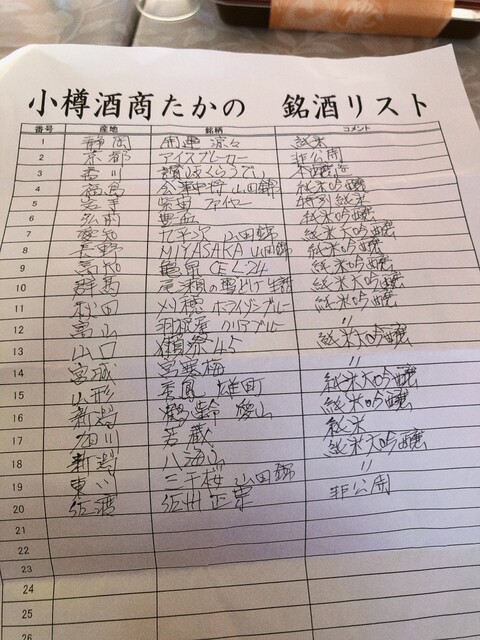 小樽酒商たかの 銘酒リスト
番号 産地 銘柄 コメント
1 静岡 開運 涼々 純米
2 京都 アイスブレーカー 非公開
3 香川
4 福島 会津中将 山田錦 純米吟醸
5 岩手 ファイヤー 特別純米
6 弘前 豊盃 純米吟醸
7 愛知 山田錦 純米大吟醸
8 長野 MIYASAKA 山田錦 純米吟醸
9 高知 亀泉 CEL24 純米吟醸
10 群馬 尾瀬の雪どけ 純米大吟醸
11 秋田 刈穂 ホライゾンブルー 純米吟醸
12 富山 羽根屋 クリアブルー 〃
13 山口 獺祭45 純米大吟醸
14 宮城 宮寒梅 〃
15 山形 秀鳳 雄町 純米大吟醸
16 新潟 鶴齢 愛山 純米吟醸
17 旭川 若蔵 純米
18 新潟 八海山 純米大吟醸
19 東川 三千桜 山田錦 〃
20 佐渡 佐州正宗 非公開
21
22
23
24
25
26